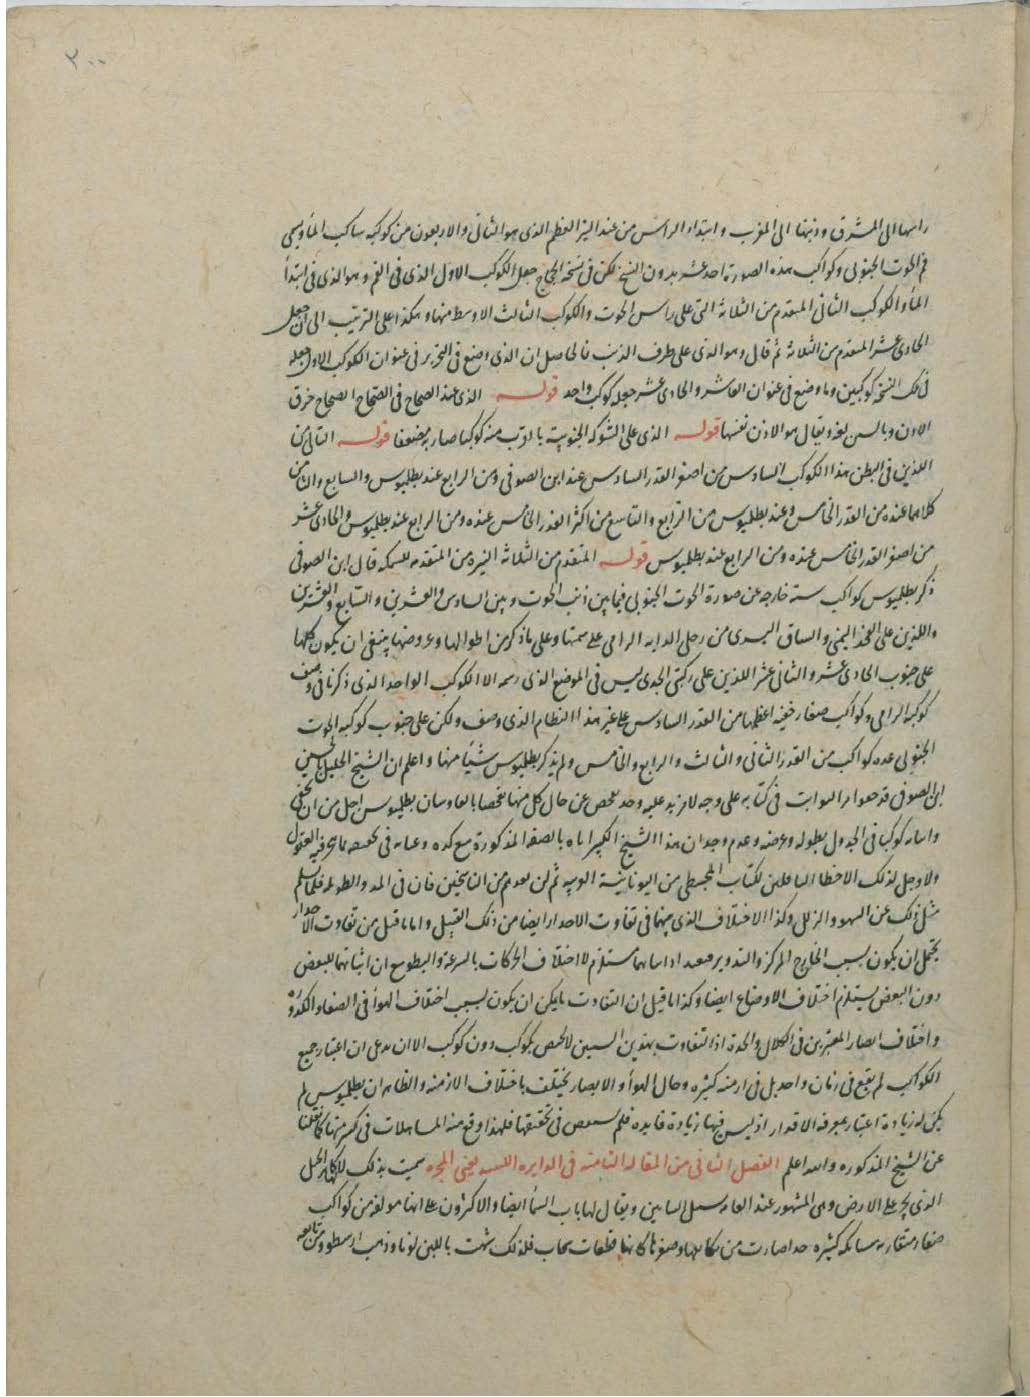 ٢٠٠
راسها الى المشرق وذنبها الى المغرب وابتداء الراس من عند النير العظيم الذى هو الثانى والاربعون من كوكبه ساكب الماء ويسمى
فم الحوت الجنوبى وكواكب هذه الصورة احد عشر بدون النسخ لكن فى نسخة الحجاج جعل الكوكب الاول الذى فى الفم وهو الذى فى ابتدأ
الماء والكوكب الثانى المتقدم من الثلاثة التى على راس الحوت والكوكب الثالث الاوسط منها وهكذا على الترتيب الى ان جعل
الحادى عشر المتقدم من الثلاثة ثم قال وهو الذى على طرف الذنب فالحاصل ان الذى وضع فى التحرير فى عنوان الكوكب الاول جعله
فى تلك النسخة كوكبين وما وضع فى عنوان العاشر والحادى عشر جعله كوكب واحد قوله الذى عند الصماخ فى الصحاح الصماخ خرق
الاذن وبالسين لغة ويقال هو الاذن نفسها قوله الذى على الشوكة الجنوبية بالقرب منه كوكبا صار به مضعفا قوله التالى من
اللذين فى البطن هذا الكوكب السادس من اصغر القدر السادس عند ابن الصوفى ومن الرابع عند بطلميوس والسابع والثامن
كلاهما عنده من القدر الخامس وعند بطلميوس من الرابع والتاسع من اكثر القدر الخامس عنده ومن الرابع عند بطلميوس والحادى عشر
من اصغر القدر الخامس عنده ومن الرابع عند بطلميوس قوله المتقدم من الثلاثة النيرة من المتقدمة للسمكة قال ابن الصوفى
ذكر بطلميوس كواكب ستة خارجه عن صورة الحوت الجنوبى فيما بين ذنب الحوت وبين السادس والعشرين والسابع والعشرين
واللذين على الفخذ اليمنى والساق اليسرى من رجلى الدابه الرامى على سمتها وعلى ما ذكر من اطوالها وعروضها ينبغى ان يكون كلها
على جنوب الحادى عشر والثانى عشر اللذين على ركبتى الجدى ليس فى الموضع الذى رسمه الا الكوكب الواحد الذى ذكرنا فى وصف
كوكبه الرامى وكواكب صغار خفيه اعظمها من القدر السادس على غير هذا النظام الذى وصف ولكن على جنوب كوكبه الحوت
الجنوبى عده كواكب من القدر الثانى والثالث والرابع والخامس ولم يذكر بطلميوس شيئا منها واعلم ان الشيخ الجليل الحسين
ابن الصوفى قد فى كتابه على وجه لا مزيد عليه وحد عن حال كل منها بطلميوس اجل من ان
كوكبا فى الجدول بطوله وعرضه وعدم وجدان هذا الشيخ الكبير اياه بالصفة المذكورة مع
ولا وجه لذلك الا خطا الناقلين لكتاب المجسطى من اليونانية ثم لمن بعدهم من الناسخين فان فى قلما يسلم
مثل ذلك عن السهو والزلل وكذا الاختلاف الذى بينهما فى تفاوت الاقدار ايضا من ذلك القبيل واما ما قيل من تفاوت الاقدار
يحتمل ان يكون بسبب الخارج المركز والتدوير مستلزم لاختلاف الحركات بالسرعة والبطو مع ان اثباتهما للبعض
دون البعض يستلزم اختلاف الاوضاع ايضا وكذا ما قيل ان التفاوت يمكن ان يكون بسبب اختلاف الهوأ فى الصفا والكدوة
واختلاف ابصار المعتبرين فى الكلال والحدة اذ التفاوت بهذين السببين لا يختص بكوكب دون كوكب الا ان اعتبار جميع
الكواكب لم يقع فى زمان واحد بل فى ازمنه كثيره وحال الهوأ والابصار يختلف باختلاف الازمنه والظاهر ان بطلميوس لم
يكن له زيادة اعتبار بمعرفة الاقدار اذ ليس فيها زيادة فايده فلم فى تحقيقها فلهذا وقع منه المساهلات فى كثير منها كما نقلنا
عن الشيخ المذكوره والله اعلم الفصل الثانى من المقالة الثامنه فى الدايره اللبنيه يعنى المجره سميت بذلك
الذى على الارض وهى المشهور عند العامه ويقال لها باب السمأ ايضا والاكثرون على انها مولفه من كواكب
صغار متقاربه كثيره جدا صارت من وصغرها كانها قطعات سحاب فلذلك شبهت باللبن لونا وذهب ارسطو ومن تابعه